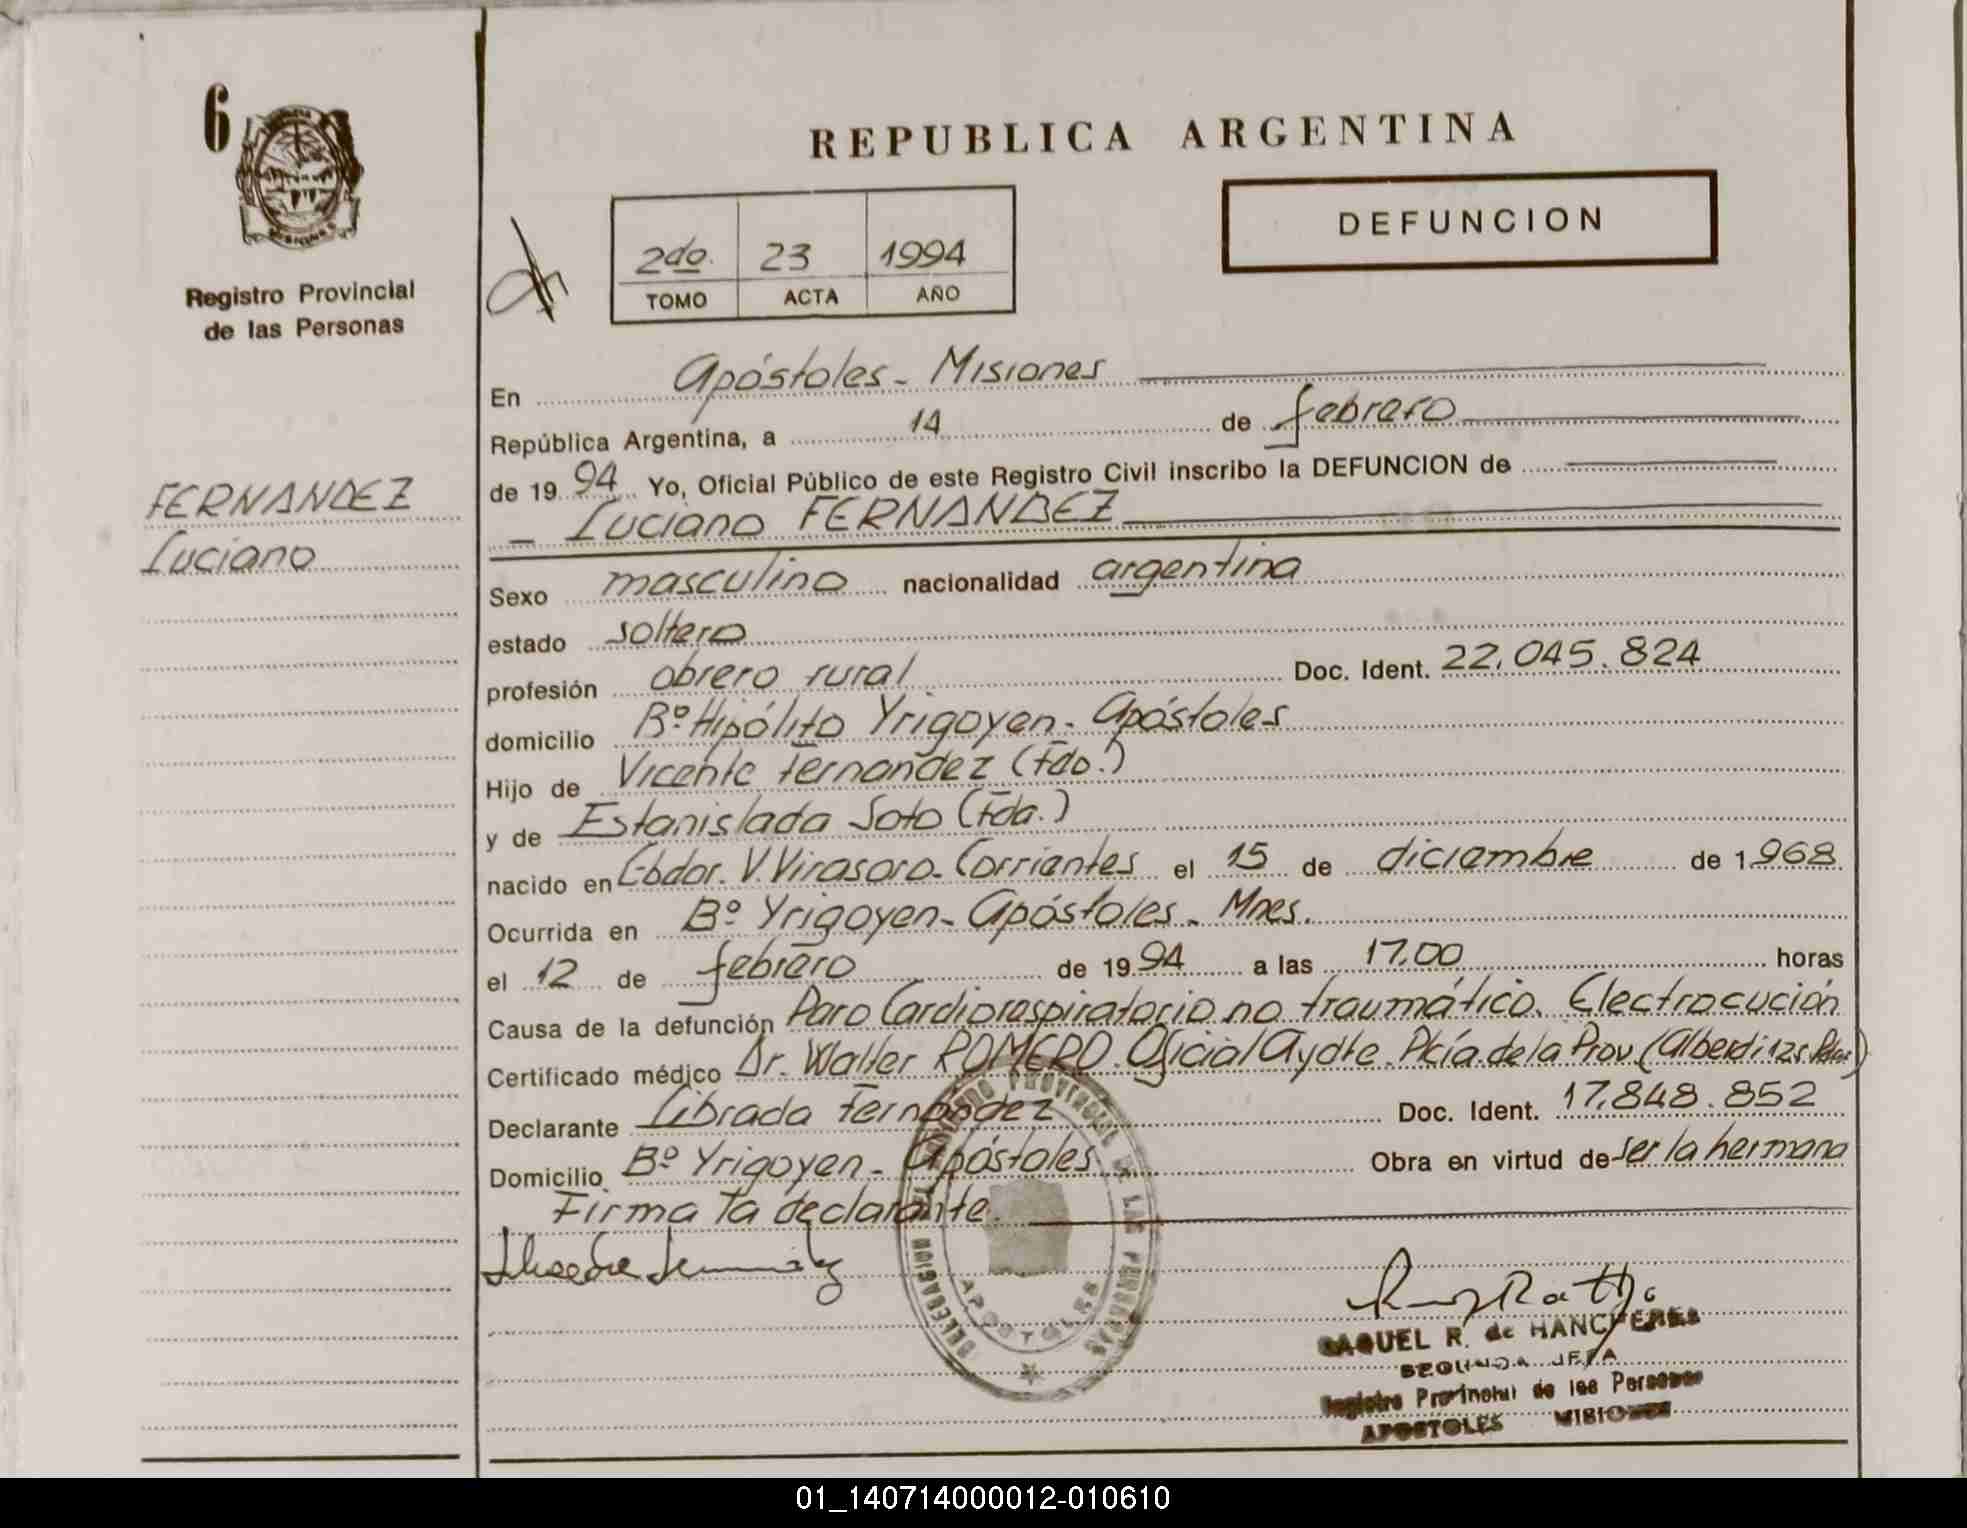 6
Registro Provincial
de las Personas
FERNANDEZ
Luciano
REPUBLICA ARGENTINA
DEFUNCION
2do. 23 1994
TOMO ACTA AÑO
En Apóstoles - Misiones
República Argentina, a 14 de febrero
de 19 94 Yo, Oficial Público de este Registro Civil inscribo la DEFUNCION de
- Luciano FERNANDEZ
Sexo masculino nacionalidad argentina
estado soltero
profesión obrero rural Doc. Ident. 22.045.824
domicilio Bº Hipólito Yrigoyen - Apóstoles
Hijo de Vicente Fernandez (Fdo.)
y de Estanislada Soto (Fda.)
nacido en Gbdor. V. Virasoro - Corrientes el 15 de diciembre de 1968
Ocurrida en Bº Yrigoyen - Apóstoles - Mnes.
el 12 de febrero de 19 94 a las 17,00 horas
Causa de la defunción Paro Cardiorespiratorio no traumático. Electrocución
Certificado médico Dr. Walter ROMERO. Oficial Aydte. Plcía. de la Prov (Alberdi 125 Pdas)
Declarante Librada Fernandez Doc. Ident. 17.848.852
Domicilio Bº Yrigoyen - Apóstoles Obra en virtud de ser la hermana
Firma la declarante.
RAQUEL R. de HANCHERES
SEGUNDA JEFA
Registro Provincial de las Personas
APOSTOLES MISIONES
DELEGACION
DE LAS PERSONAS
APOSTOLES
01_140714000012-010610